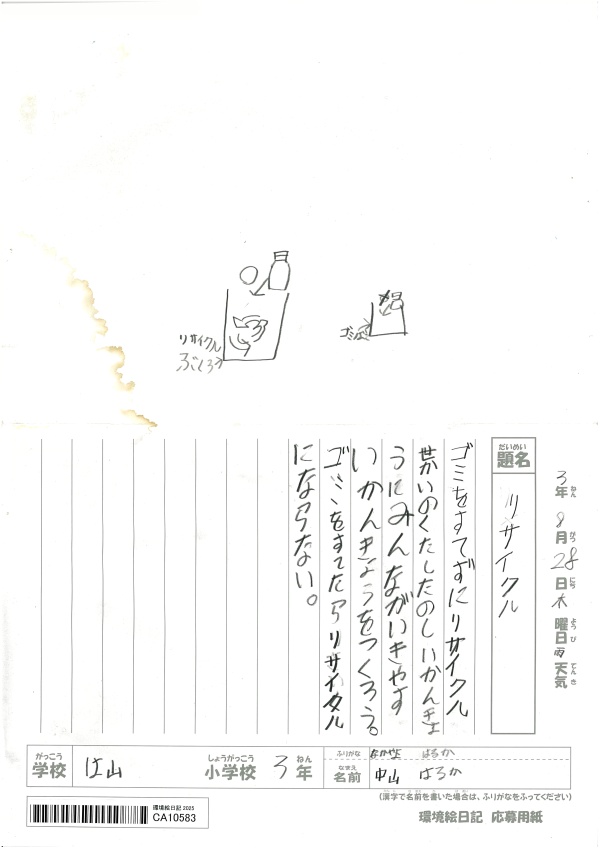 リサイクル
ぶくろ
3年 8月 28日 木曜日 雨 天気
ねん がつ にち ようび てんき
だいめい
題名
リサイクル
ゴミをすてずにリサイクル
せかいのくたしたのしいかんきょ
うにみんながいきやす
いかんきょうをつくろう。
ゴミをすてたらリサイクル
にならない。
がっこう
学校
しょうがっこう
小学校 3年
ねん
ふりがな はるか
なまえ
名前 中山 はるか
(漢字で名前を書いた場合は、ふりがなをふってください)
環境絵日記 2025
CA10583
環境絵日記 応募用紙